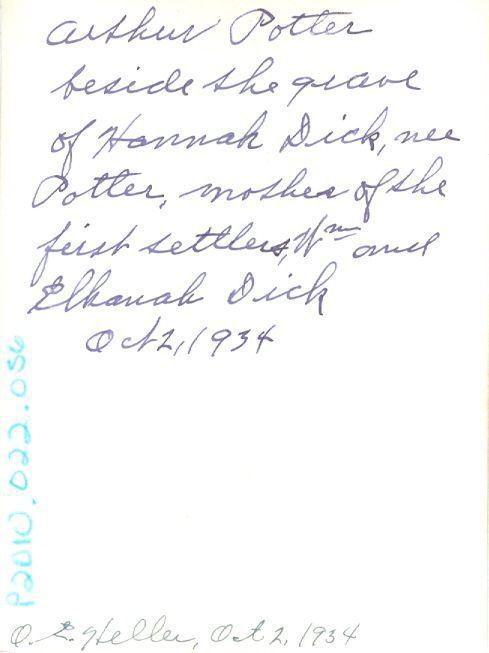 Arthur Potter
beside the grave
of Hannah Dick, nee
Potter, mother of the
first settlers, Wm and
Elkanah Dick
Oct 2, 1934
P2010.022.056
O. E. Heller, Oct 2, 1934